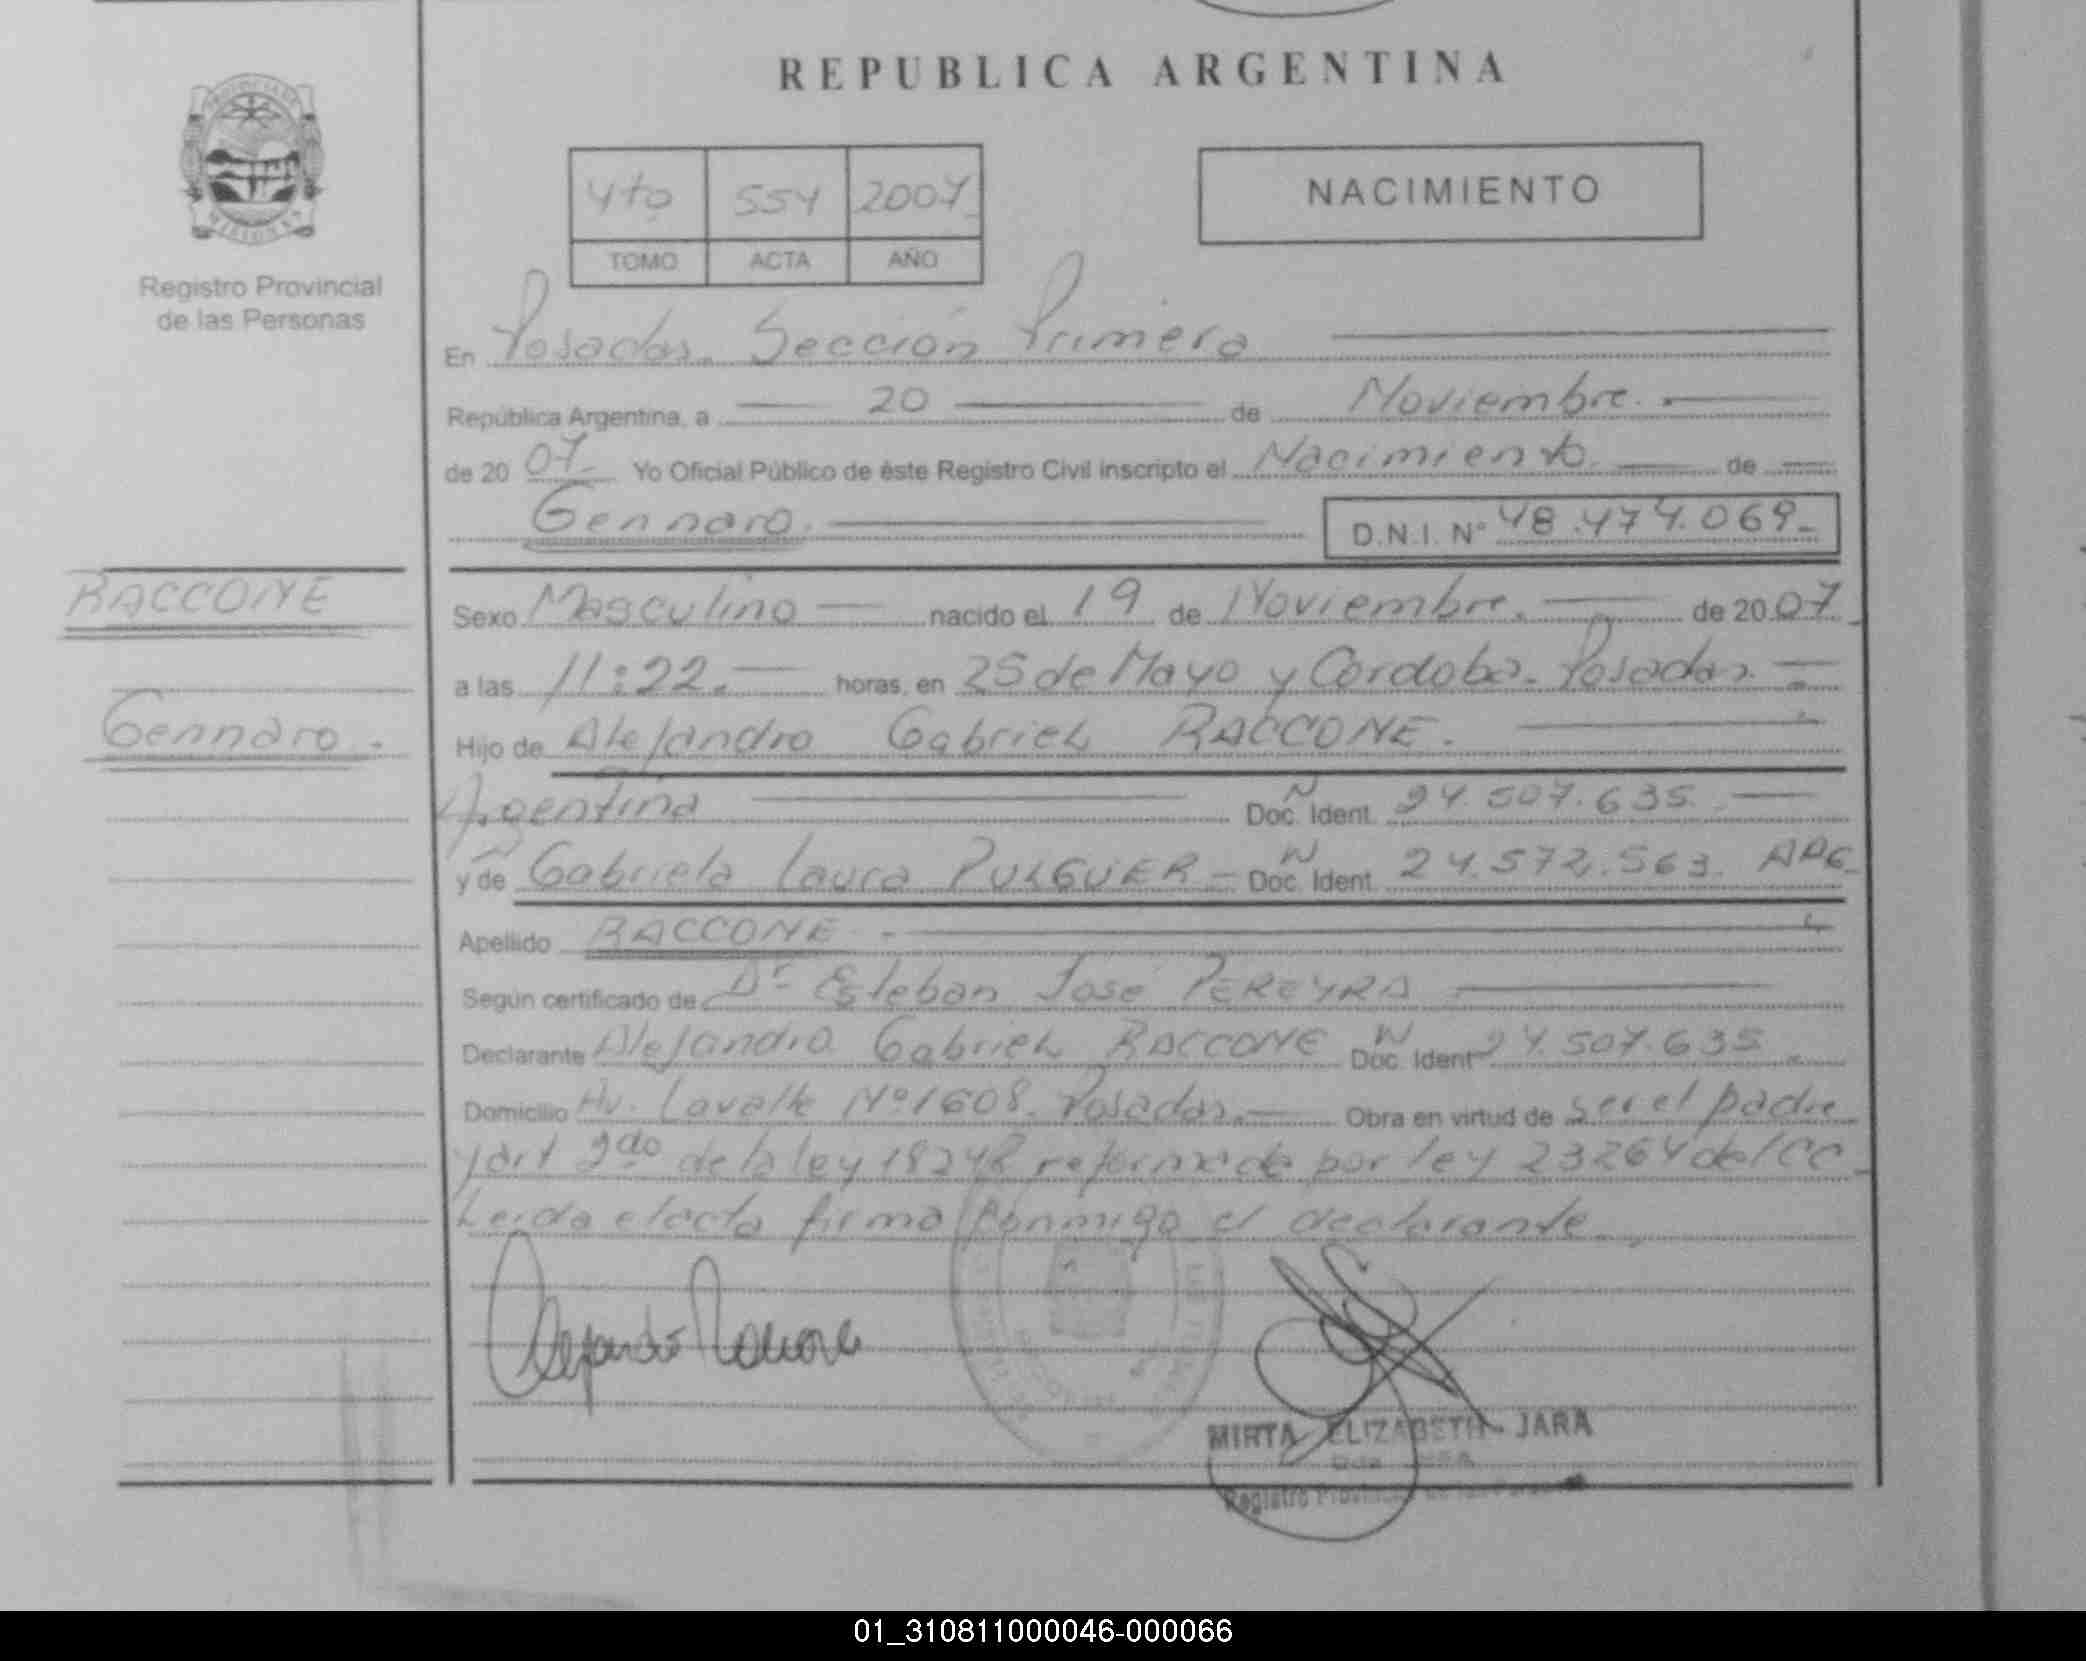 REPUBLICA ARGENTINA
PROVINCIA DE
MISIONES
Registro Provincial
de las Personas
4to 554 2007
TOMO ACTA AÑO
NACIMIENTO
En Posadas. Sección Primera
República Argentina, a 20 de Noviembre.
de 20 07. Yo Oficial Público de éste Registro Civil inscripto el Nacimiento. de
Gennaro. D.N.I. N° 48.474.069.
RACCONE
Gennaro.
Sexo Masculino nacido el 19 de Noviembre. de 20 07.
a las 11:22. horas, en 25 de Mayo y Cordoba. Posadas.
Hijo de Alejandro Gabriel RACCONE.
Argentina Doc. Ident. N 24.507.635.
y de Gabriela Laura PULGUER Doc. Ident. N 24.572.563. ARG.
Apellido RACCONE
Según certificado de Dr Esteban José PEREYRA
Declarante Alejandro Gabriel RACCONE Doc. Ident N 24.507.635.
Domicilio Av. Lavalle Nº 1608. Posadas. Obra en virtud de ser el padre
y art 2do de la ley 18248 reformada por ley 23264 del CC.
Leida el acta firma conmigo el declarante.
Alejandro Raccone
MIRTA ELIZABETH JARA
Registro Provincial de las Personas
01_310811000046-000066